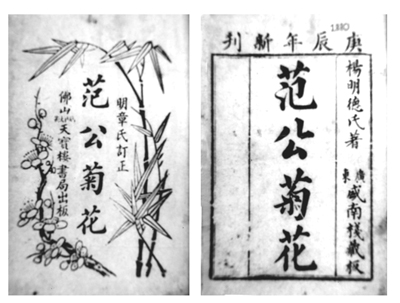 明章氏訂正
范公菊花
佛山天寶樓書局出板
1880
庚辰年新刊
楊明德氏著
廣東威南棧藏板
范公菊花